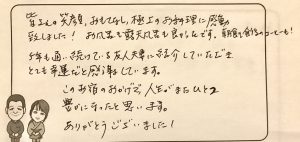 皆さんの笑顔、おもてなし、極上のお料理に感動
致しました! お風呂も露天風呂も良かったです。朝食も食後のコーヒーも!
5年も通い続けている友人夫妻に紹介していただき
とても幸運だと感謝しています。
このお宿のおかげで、人生がまたひとつ
豊かになったと思います。
ありがとうございました!